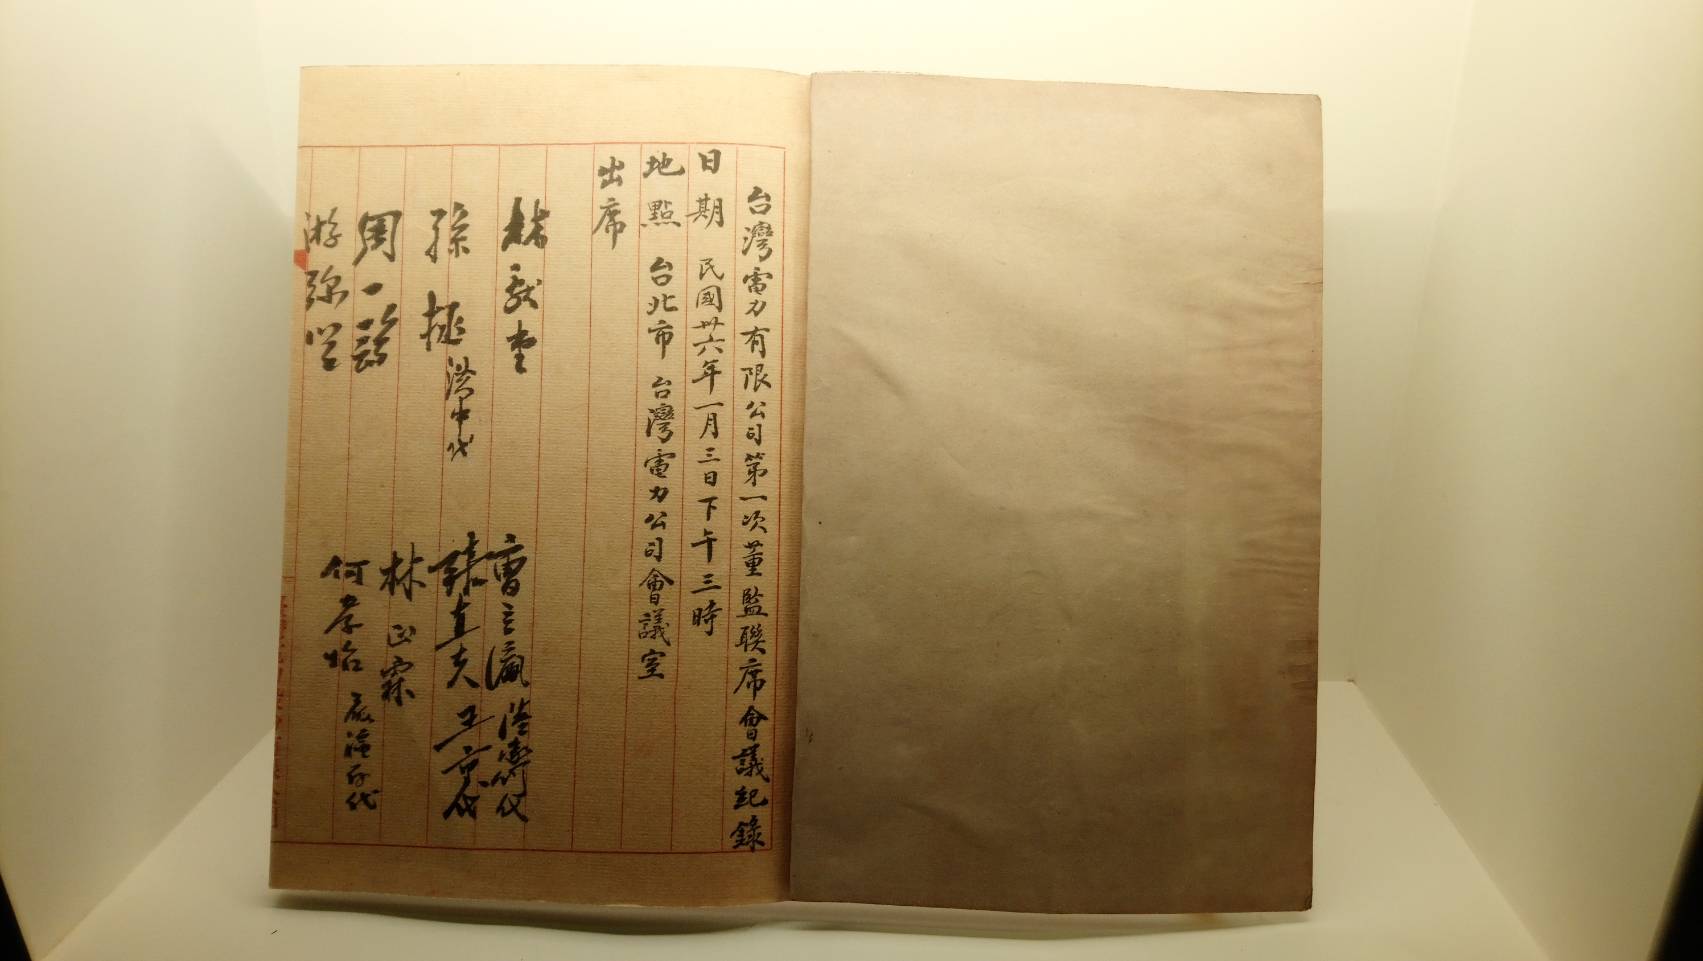 台灣電力有限公司第一次董監聯席會議紀錄
日期 民國卅六年一月三日下午三時
地點 台北市 台灣電力公司會議室
出席
林献堂
孫拯 洪中代
周一鶚
游弥堅
曹立瀛
張直夫 代
林正霖
何孝怡 代